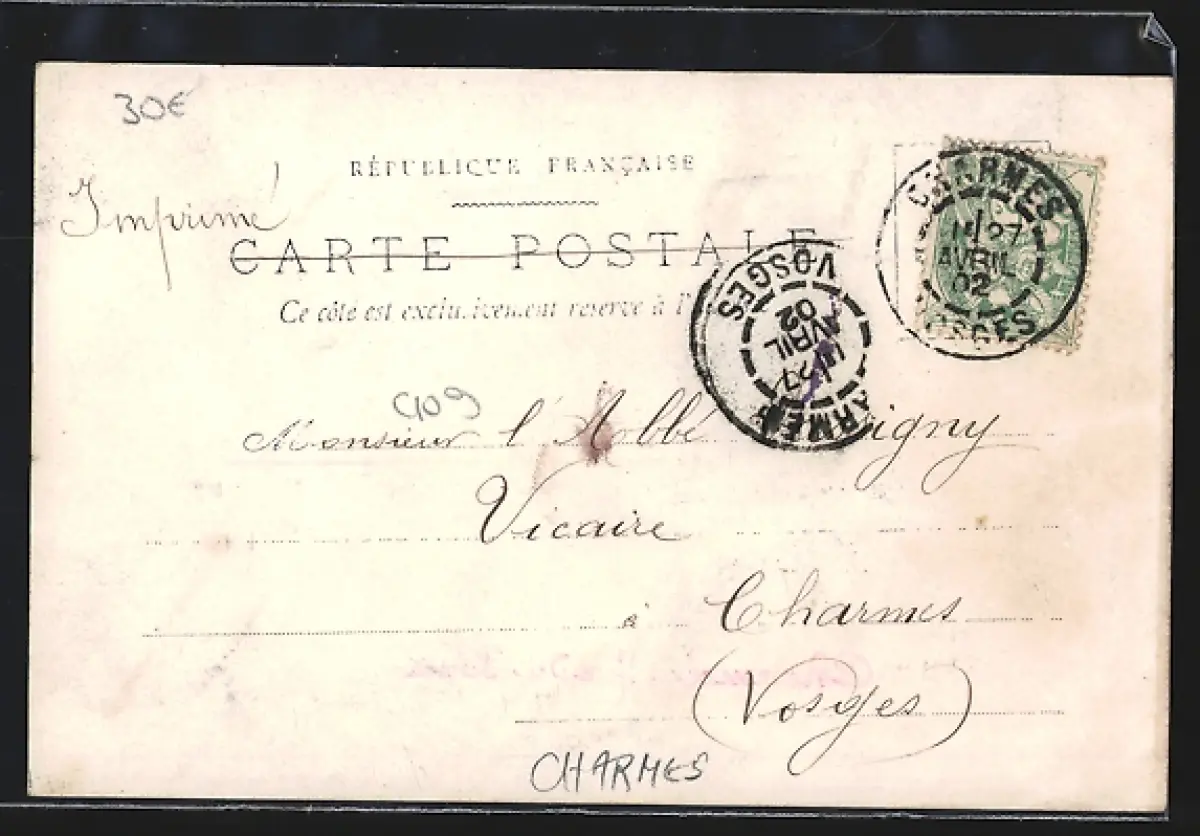 30€
RÉPUBLIQUE FRANÇAISE
Imprimé
CARTE POSTALE
Ce côté est exclusivement réservé à l'
CHARMES
27
AVRIL
02
VOSGES
VOSGES
02
AVRIL
27
Monsieur l'Abbé
Vicaire
à Charmes
(Vosges)
CHARMES